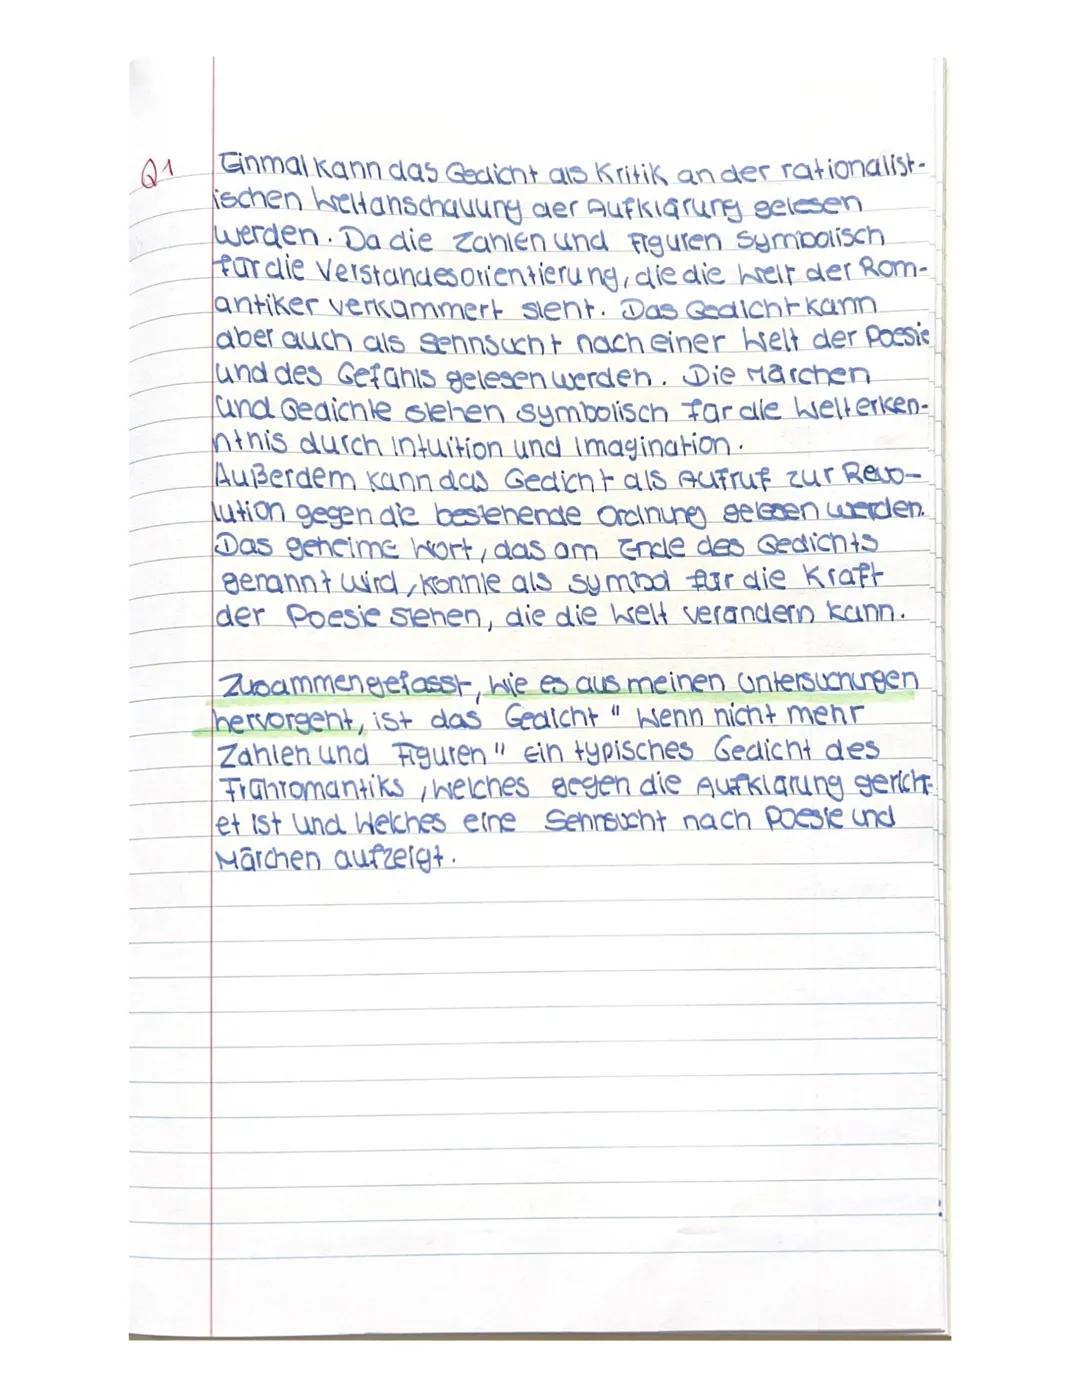 Q1
Einmal kann das Gedicht als Kritik an der rationalist-
ischen Weltanschauung der Aufklärung gelesen
werden. Da die Zahlen und Figuren symbolisch
für die Verstandesorientierung, die die Welt der Rom-
antiker verkammert sieht. Das Gedicht kann
aber auch als Sehnsucht nach einer Welt der Poesie
und des Gefühls gelesen werden. Die Märchen
und Gedichte stehen symbolisch für die Welterken-
ntnis durch Intuition und Imagination.
Außerdem kann das Gedicht als Aufruf zur Revo-
lution gegen die bestehende Ordnung gelesen werden.
Das geheime Wort, das am Ende des Gedichts
genannt wird, könnte als Symbol für die Kraft
der Poesie stehen, die die Welt verändern kann.
Zusammengefasst, wie es aus meinen Untersuchungen
hervorgeht, ist das Gedicht "Wenn nicht mehr
Zahlen und Figuren" ein typisches Gedicht des
Frühromantiks, welches gegen die Aufklärung gericht-
et ist und welches eine Sehnsucht nach Poesie und
Märchen aufzeigt.